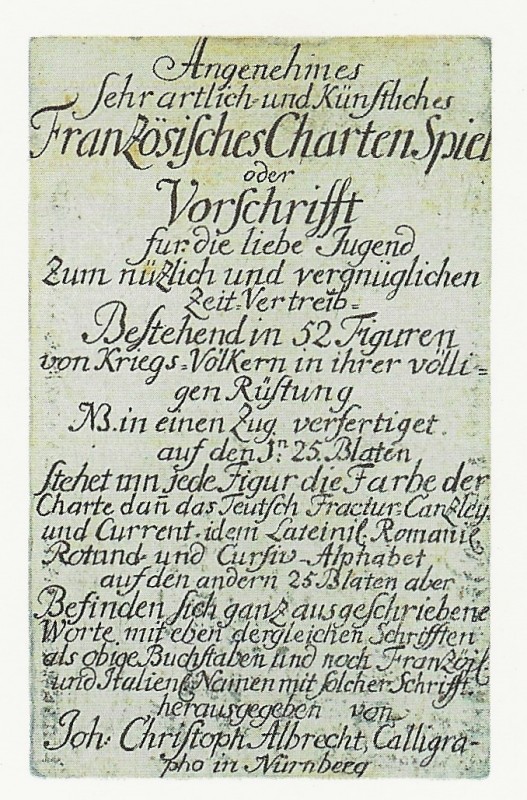 Angenehmes
sehr artlich und Künstliches
Französisches Charten Spiel
oder
Vorschrifft
für die liebe Jugend
Zum nützlich und vergnüglichen
Zeit-Vertreib=
Bestehend in 52 Figuren
von Kriegs=Völkern in ihrer völli=
gen Rüstung
NB. in einen Zug verfertiget.
auf den 1n. 25. Blaten
stehet um jede Figur die Farbe der
Charte dan̄ das Teutsch Fractur-Canzley
und Current. idem Lateinis. Romanis.
Rotund- und Cursiv-Alphabet
auf den andern 25 Blaten aber
Befinden sich ganz ausgeschriebene
Worte mit eben dergleichen Schrifften
als obige Buchstaben und noch Französis.
und Italiens. Namen mit solcher Schrifft.
herausgegeben von
Joh: Christoph Albrecht, Calligra-
pho in Nürnberg